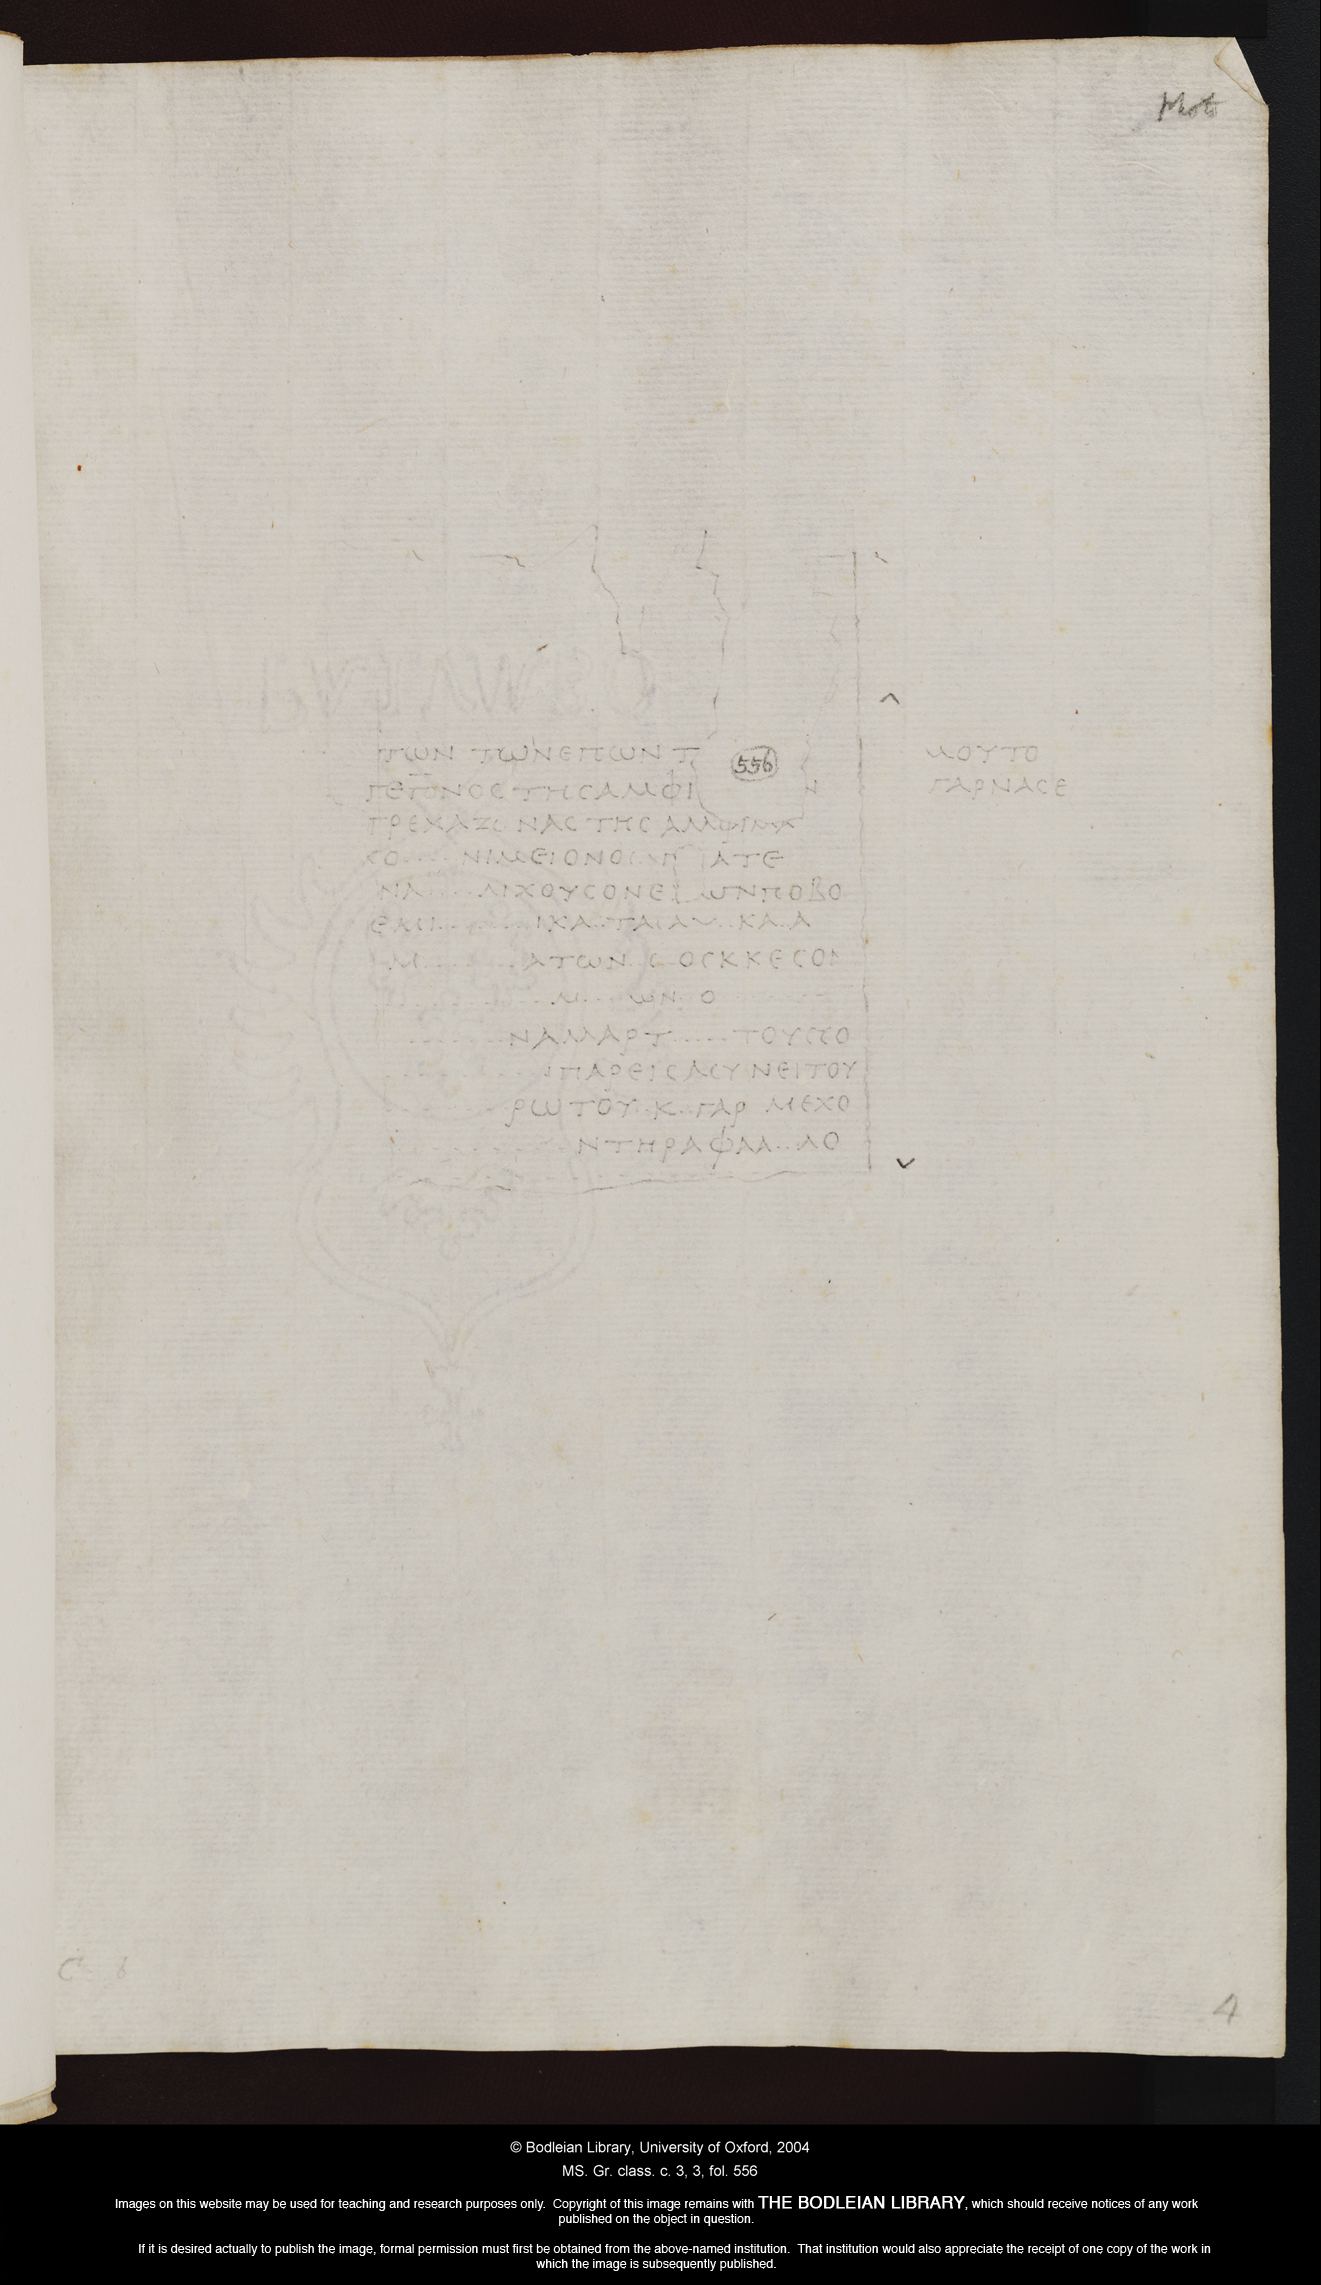 Photo
ΠΩΝ ΤΩΝΕΠΩΝ Τ
556
ΜΟΥΤΟ
ΠΕΠΟΝΟCΤΗCΑΜΦΙ
Ν
ΓΑΡΝΑCΕ
ΝΑC ΤΗC
ΝΙΜΕΙΟΝΟ ΑΤΕ
ΛΙΧΟΥCΟΝΕ ΩΝΠΟΒΟ
ΙΚΑ..ΤΑ ΚΑ.Α
Μ........ΑΤΩΝ ΟCΚΚΕCΟ
Μ.... ΩΝ Ο
ΝΑΜΑΡΤ......ΤΟΥCCΟ
ΠΑΡΕΙCΑCΥΝΕΙΤΟΥ
ΡΩΤΟΥ.Κ..ΓΑΡ ΜΕΧΟ
ΝΤΗΡΑΦΛΑ..ΛΟ
4
© Bodleian Library, University of Oxford, 2004
MS. Gr. class. c. 3, 3, fol. 556
Images on this website may be used for teaching and research purposes only. Copyright of this image remains with THE BODLEIAN LIBRARY, which should receive notices of any work
published on the object in question.
If it is desired actually to publish the image, formal permission must first be obtained from the above-named institution. That institution would also appreciate the receipt of one copy of the work in
which the image is subsequently published.